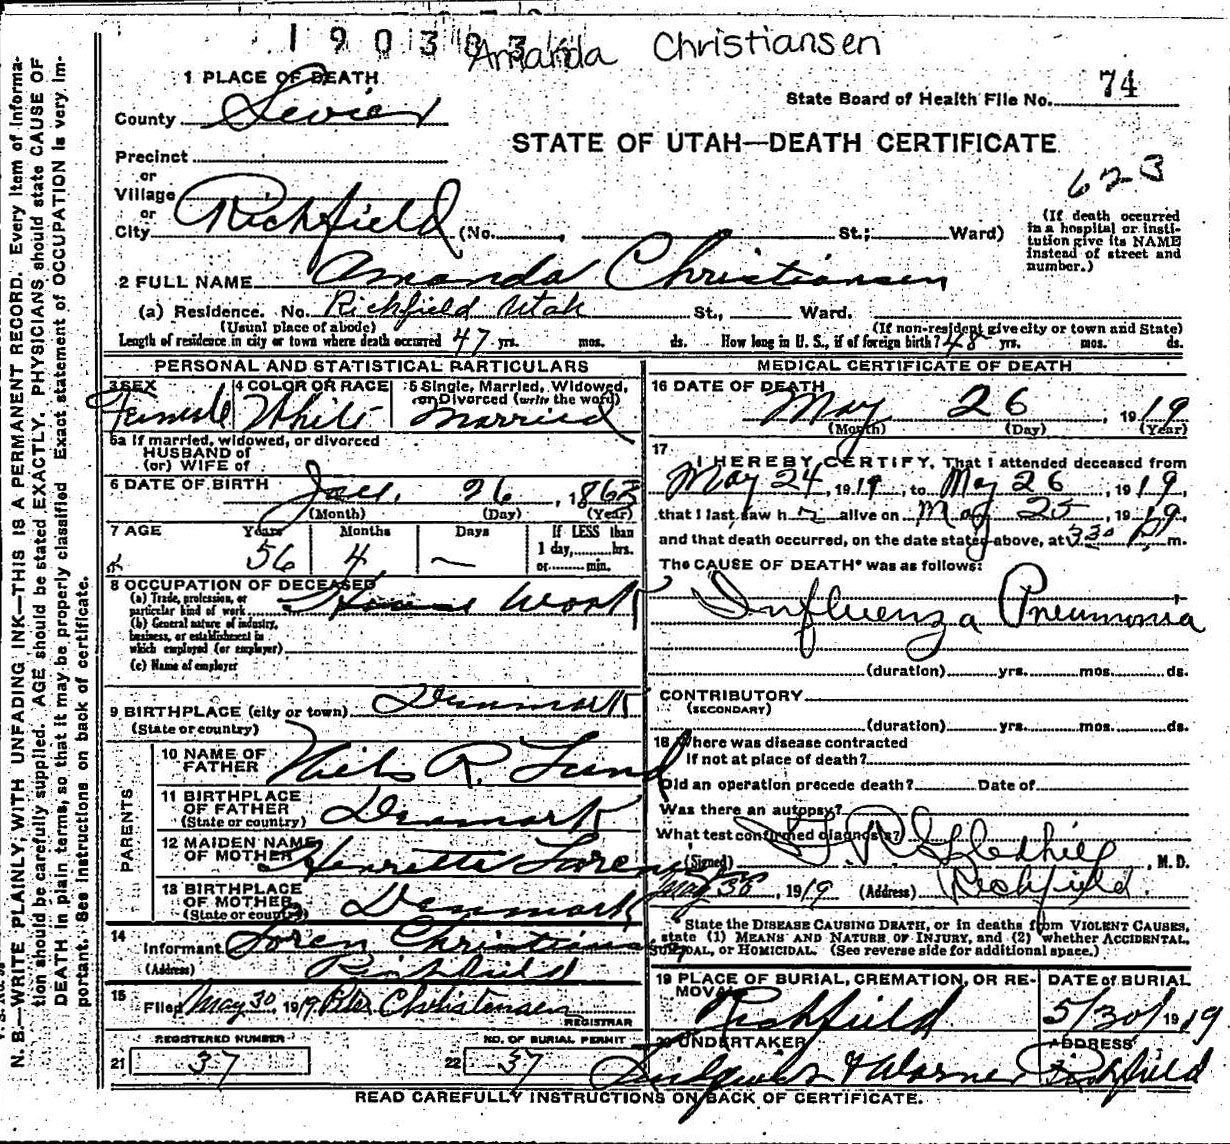 1903083
Amanda Christiansen
1 PLACE OF DEATH
County Sevier
State Board of Health File No. 74
STATE OF UTAH—DEATH CERTIFICATE
Precinct
or
Village
or
City Richfield (No. St.; Ward)
623
(If death occurred in a hospital or institution give its NAME instead of street and number.)
2 FULL NAME Amanda Christiansen
(a) Residence. No. Richfield Utah St., Ward.
(Usual place of abode) (If non-resident give city or town and State)
Length of residence in city or town where death occurred 47 yrs. mos. ds. How long in U. S., if of foreign birth? 48 yrs. mos. ds.
PERSONAL AND STATISTICAL PARTICULARS
3 SEX Female
4 COLOR OR RACE White
5 Single, Married, Widowed, or Divorced (write the word) Married
5a If married, widowed, or divorced
HUSBAND of
(or) WIFE of
6 DATE OF BIRTH Jan. 26, 1863
(Month) (Day) (Year)
7 AGE Years Months Days If LESS than
56 4 — 1 day, hrs.
or min.
8 OCCUPATION OF DECEASED
(a) Trade, profession, or particular kind of work House Work
(b) General nature of industry, business, or establishment in which employed (or employer)
(c) Name of employer
9 BIRTHPLACE (city or town) Denmark
(State or country)
PARENTS
10 NAME OF FATHER Niels R. Lund
11 BIRTHPLACE OF FATHER Denmark
(State or country)
12 MAIDEN NAME OF MOTHER Henrette
13 BIRTHPLACE OF MOTHER Denmark
(State or country)
14 Informant Soren Christiansen
(Address) Richfield
15 Filed May 30 1919 Christensen
REGISTRAR
REGISTERED NUMBER NO. OF BURIAL PERMIT
21 37 22 37
MEDICAL CERTIFICATE OF DEATH
16 DATE OF DEATH
May 26, 1919
(Month) (Day) (Year)
17
I HEREBY CERTIFY, That I attended deceased from
May 24, 1919, to May 26, 1919,
that I last saw h r alive on May 25, 1919,
and that death occurred, on the date stated above, at 3 30 P m.
The CAUSE OF DEATH* was as follows:
Influenza Pneumonia
(duration) yrs. mos. ds.
CONTRIBUTORY
(SECONDARY)
(duration) yrs. mos. ds.
18 Where was disease contracted
If not at place of death?
Did an operation precede death? Date of
Was there an autopsy?
What test confirmed diagnosis?
(Signed) Gledhill, M. D.
May 30, 1919 (Address) Richfield
*State the DISEASE CAUSING DEATH, or in deaths from VIOLENT CAUSES,
state (1) MEANS AND NATURE OF INJURY, and (2) whether ACCIDENTAL,
SUICIDAL, or HOMICIDAL. (See reverse side for additional space.)
19 PLACE OF BURIAL, CREMATION, OR REMOVAL Richfield
DATE of BURIAL
5/30/1919
20 UNDERTAKER & Warner
ADDRESS Richfield
READ CAREFULLY INSTRUCTIONS ON BACK OF CERTIFICATE.
N. B.—WRITE PLAINLY, WITH UNFADING INK—THIS IS A PERMANENT RECORD. Every item of informa-
tion should be carefully supplied. AGE should be stated EXACTLY. PHYSICIANS should state CAUSE OF
DEATH in plain terms, so that it may be properly classified. Exact statement of OCCUPATION is very im-
portant. See instructions on back of certificate.